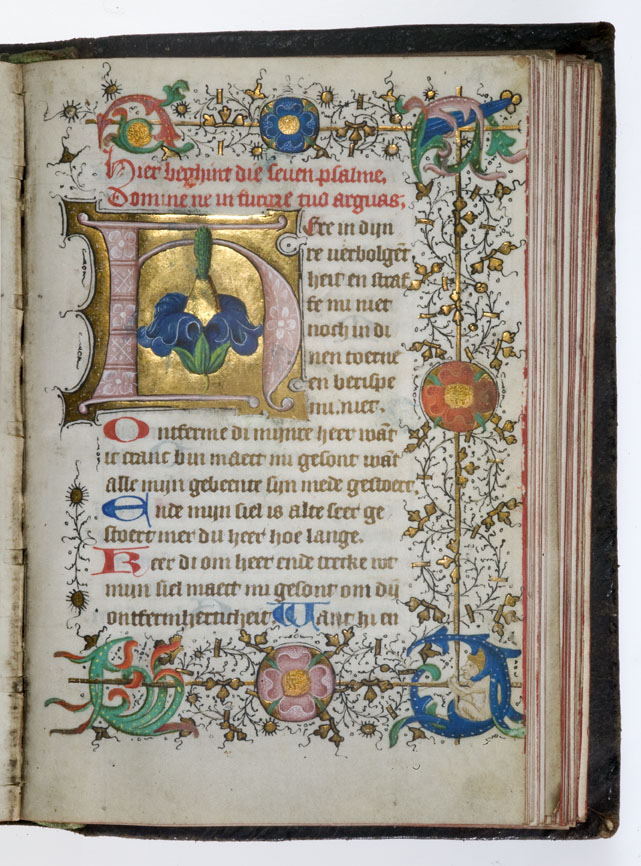 Hier beghint die seuen psalme,
Domine ne in furore tuo arguas;
Ere in dyn
re uerbolgēt
heit en straf
fe mi niet
noch in di
nen toerne
en berispe
mi.niet.
Ontferme di mijnre heer wāt
ic cranc bin maect mi gesont wāt
alle mijn gebeente sijn mede gestoert.
Ende mijn siel is alte seer ge
stoert mer du heer hoe lange.
Keer di om heer ende trecke wt
mijn siel maect mi gesont om dij
ontfermherticheit Want hi en